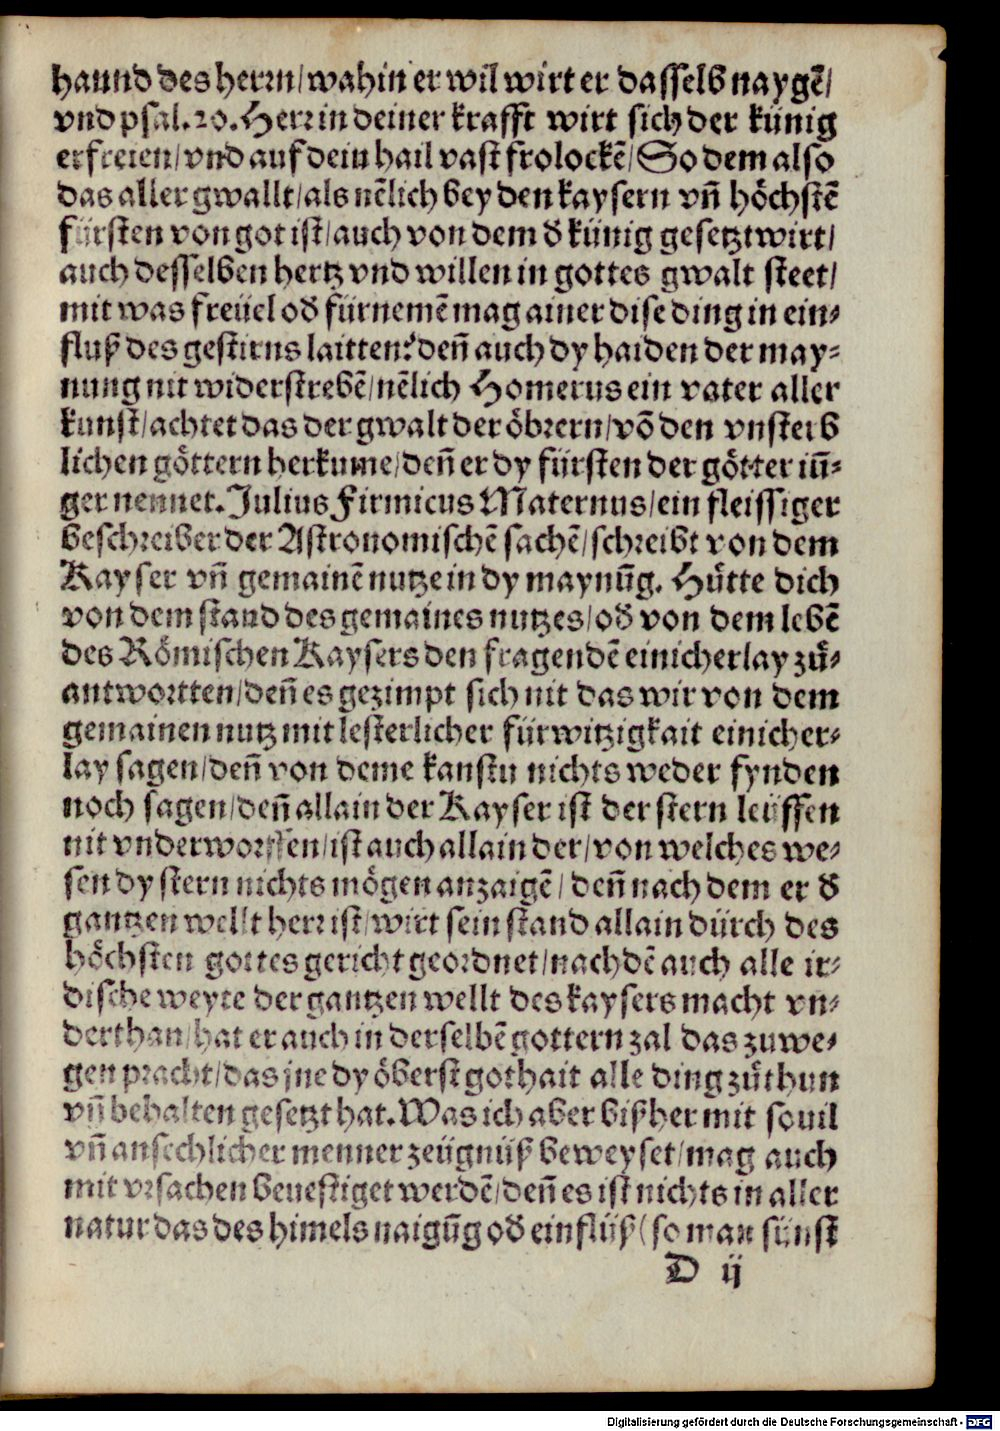 haund des herrn/wahin er wil wirt er dasselb naygē/
vnd psal.20.Herr in deiner krafft wirt sich der künig
erfreien/vnd auf dein hail vast frolockē/So dem also
das aller gwallt/als nēlich bey den kaysern vñ höchstē
fürsten von got ist/auch von dem d̕ künig gesetzt wirt/
auch desselben hertz vnd willen in gottes gwalt steet/
mit was freüel od̕ fürnemē mag ainer dise ding in ein⸗
fluß des gestirns laitten? deñ auch dy haiden der may⸗
nung nit widerstrebē/nēlich Homerus ein vater aller
kunst/achtet das der gwalt der öbrern/vō den vnsterb
lichen göttern herkume/deñ er dy fürsten der götter iüñ⸗
ger nennet. Julius Firmicus Maternus/ein fleissiger
beschreiber der Astronomischē sachē/schreibt von dem
Kayser vñ gemainē nutze in dy maynūg. Hütte dich
von dem stand des gemaines nutzes/od̕ von dem lebē
des Römischen Kaysers den fragendē einicherlay zů⸗
antwortten/deñ es gezimpt sich nit das wir von dem
gemainen nutz mit lesterlicher fürwitzigkait einicher⸗
lay sagen/deñ von deme kanstu nichts weder fynden
noch sagen/deñ allain der Kayser ist der stern leüffen
nit vnderworffen/ist auch allain der/von welches we⸗
sen dy stern nichts mögen anzaigē/ deñ nach dem er d̕
gantzen wellt herr ist/wirt sein stand allain dürch des
höchsten gottes gericht geordnet/nach dē auch alle ir⸗
dische weyte der gantzen wellt des kaysers macht vn⸗
derthan/hat er auch in derselbē gottern zal das zuwe⸗
gen pracht/das jne dy öberst gothait alle ding zů thun
vñ behalten gesetzt hat. Was ich aber bißher mit souil
vñ ansechlicher menner zeügnüß beweyset/mag auch
mit vrsachen beuestiget werdē/deñ es ist nichts in aller
natur das des himels naigūg od̕ einflüß (so man sünst
D ij
Digitalisierung gefördert durch die Deutsche Forschungsgemeinschaft - DFG